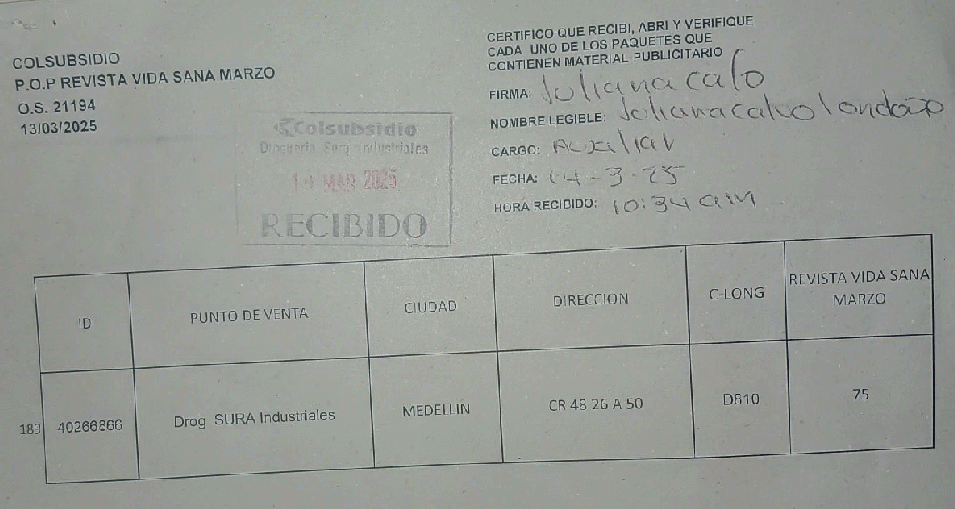 COLSUBSIDIO
P.O.P REVISTA VIDA SANA MARZO
O.S. 21194
13/03/2025
CERTIFICO QUE RECIBI, ABRI Y VERIFIQUE
CADA UNO DE LOS PAQUETES QUE
CONTIENEN MATERIAL PUBLICITARIO
FIRMA: Juliana calo
NOMBRE LEGIBLE: Juliana calvo londoño
CARGO: Auxiliar
FECHA: 14-3-25
HORA RECIBIDO: 10:34 am
Colsubsidio
Drogueria Sura Industriales
MAR 2025
RECIBIDO
ID PUNTO DE VENTA CIUDAD DIRECCION C-LONG REVISTA VIDA SANA
MARZO
183 40266866 Drog SURA Industriales MEDELLIN CR 48 26 A 50 D510 75